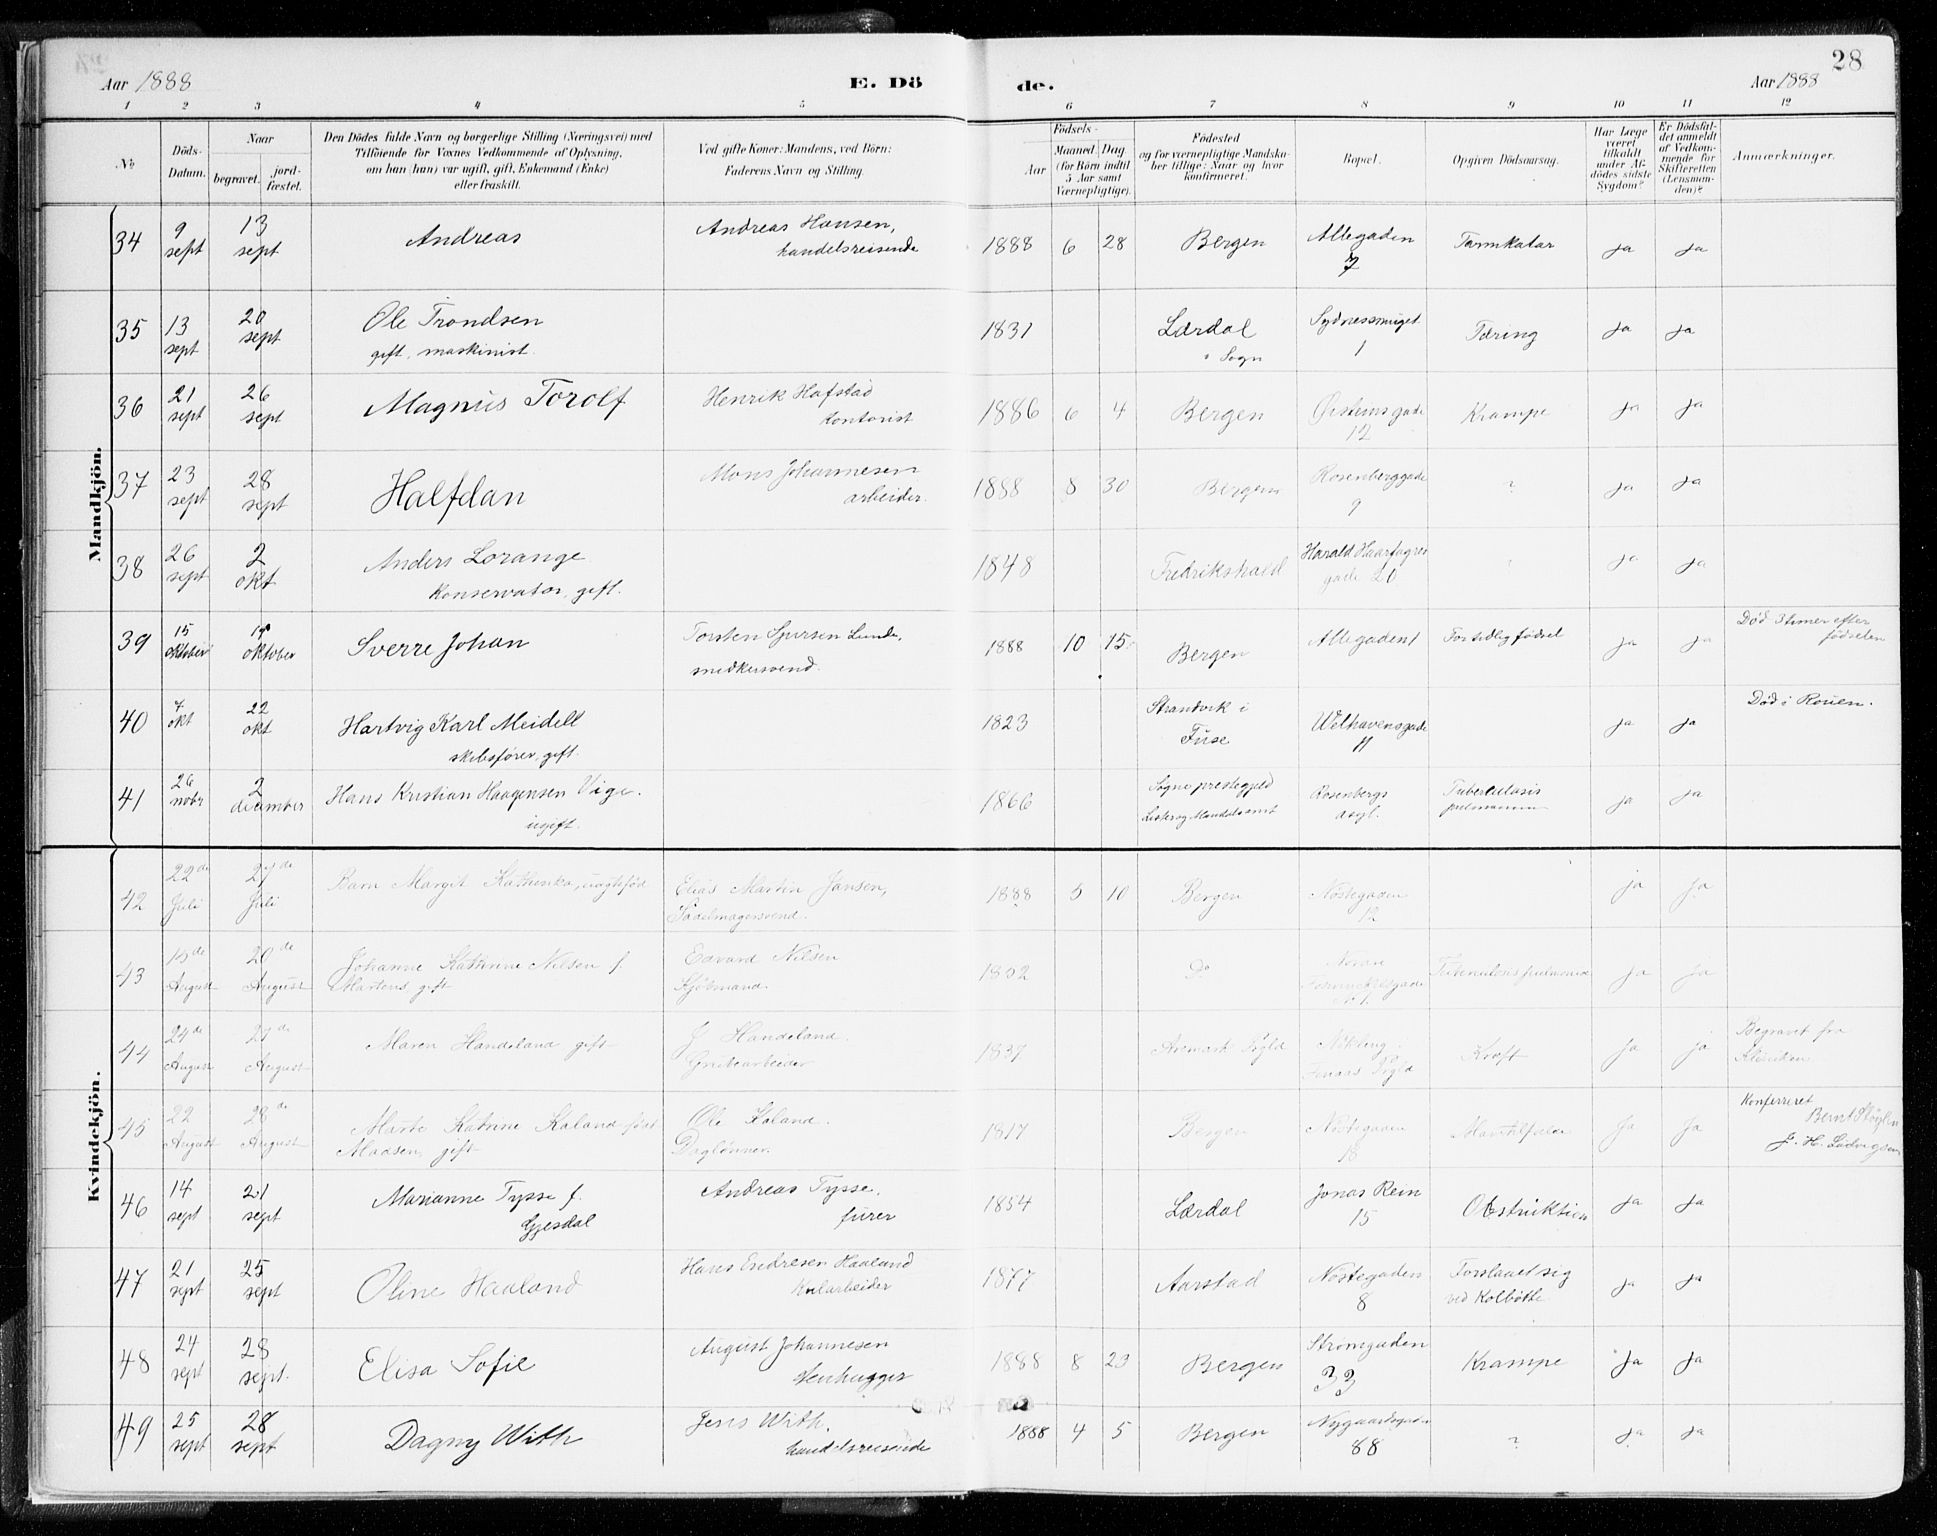 28
Aar 1888 E. Dö de. Aar 1888
1 2 3 4 5 6 7 8 9 10 11 12
№ Döds-Datum. Naar begravet. jord-fæstet. Den Dödes fulde Navn og borgerlige Stilling (Næringsvei) med Tilföiende for Voxnes Vedkommende af Oplysning, om han (hun) var ugift, gift, Enkemand (Enke) eller fraskilt. Ved gifte Koner: Mandens, ved Börn: Faderens Navn og Stilling. Födsels- Aar Maaned Dag (for Börn indtil 5 Aar samt Værnepligtige). Födested og for værnepligtige Mandska-ber tillige: Naar og hvor konfirmeret. Bopæl. Opgiven Dödsaarsag. Har Læge været tilkaldt under Af-dödes sidste Sygdom? Er Dödsfal-det anmeldt af Vedkom-mende for Skifteretten (Lensman-den)? Anmærkninger.
Mandkjön.
34 9 sept 13 sept Andreas Andreas Hansen, handelsreisende 1888 6 28 Bergen Allegaden 7 Tarmkatar ja ja
35 13 sept 20 sept Ole Trondsen gift, maskinist. 1831 Lærdal i Sogn Sydnessmuget 1 Tæring ja ja
36 21 sept 26 sept Magnus Torolf Henrik Hafstad kontorist 1886 6 4 Bergen Øisteinsgade 12 Krampe ja ja
37 23 sept 28 sept Halfdan Mons Johannesen arbeider. 1888 8 30 Bergen Rosenberggade 9 ? ja ja
38 26 sept 2 okt Anders Lorange Konservator, gift. 1848 Fredrikshald Harald Haarfagres gade 20 ? ja ja
39 15 oktober 19 oktober Sverre Johan Torsten Lunde, snedkersvend. 1888 10 15 Bergen Allegaden 1 For tidlig fødsel ja ja Død 3 timer efter fødselen
40 7 okt 22 okt Hartvig Karl Meidell skibsfører, gift. 1823 Strandvik i Fuse Welhavensgade 11 ja ja Død i Rouen.
41 26 novbr 2 december Hans Kristian Haagensen Vige. ugift. 1866 Sogne prestegjeld Lister og Mandals amt Rosenbergs asyl. Tuberkulosis pulmonum ja ja
Kvindekjön.
42 22de Juli 27de Juli Barn Margit Kathinka, uægtefød Elias Martin Jansen, Sadelmagersvend. 1888 5 10 Bergen Nøstegaden 12 ja ja
43 15de August 20de August Johanne Kathrine Nilsen f. Martens gift Edvard Nilsen Kjøbmand. 1852 Do Tuberculosis pulmonum ja ja
44 24de August 27de August Maren Handeland gift J Handeland. Grubearbeider 1837 Aremark Pgld Kræft ja ja Begravet fra Kliniken
45 22 August 28de August Marte Katrine Kaland født Madsen, gift Ole Kaland. Daglønner. 1817 Bergen Nøstegaden 18 ja ja Konfereret J. H. Ludvigsen
46 14 sept 21 sept Marianne Tysse f. Gjesdal Andreas Tysse, furer 1854 Lærdal Jonas Rein 15 Obstruktion ja ja
47 21 sept 25 sept Oline Haaland Hans Endresen Haaland kularbeider 1877 Aarstad Nøstegaden 8 Forslaaet sig ved Kolbøtte ja ja
48 24 sept 28 sept. Elisa Sofie August Johannesen stenhugger 1888 8 23 Bergen Strømgaden 33 Krampe ja ja
49 25 sept 28 sept Dagny With Jens With. handelsreisende 1888 4 5 Bergen 88 ? ja ja